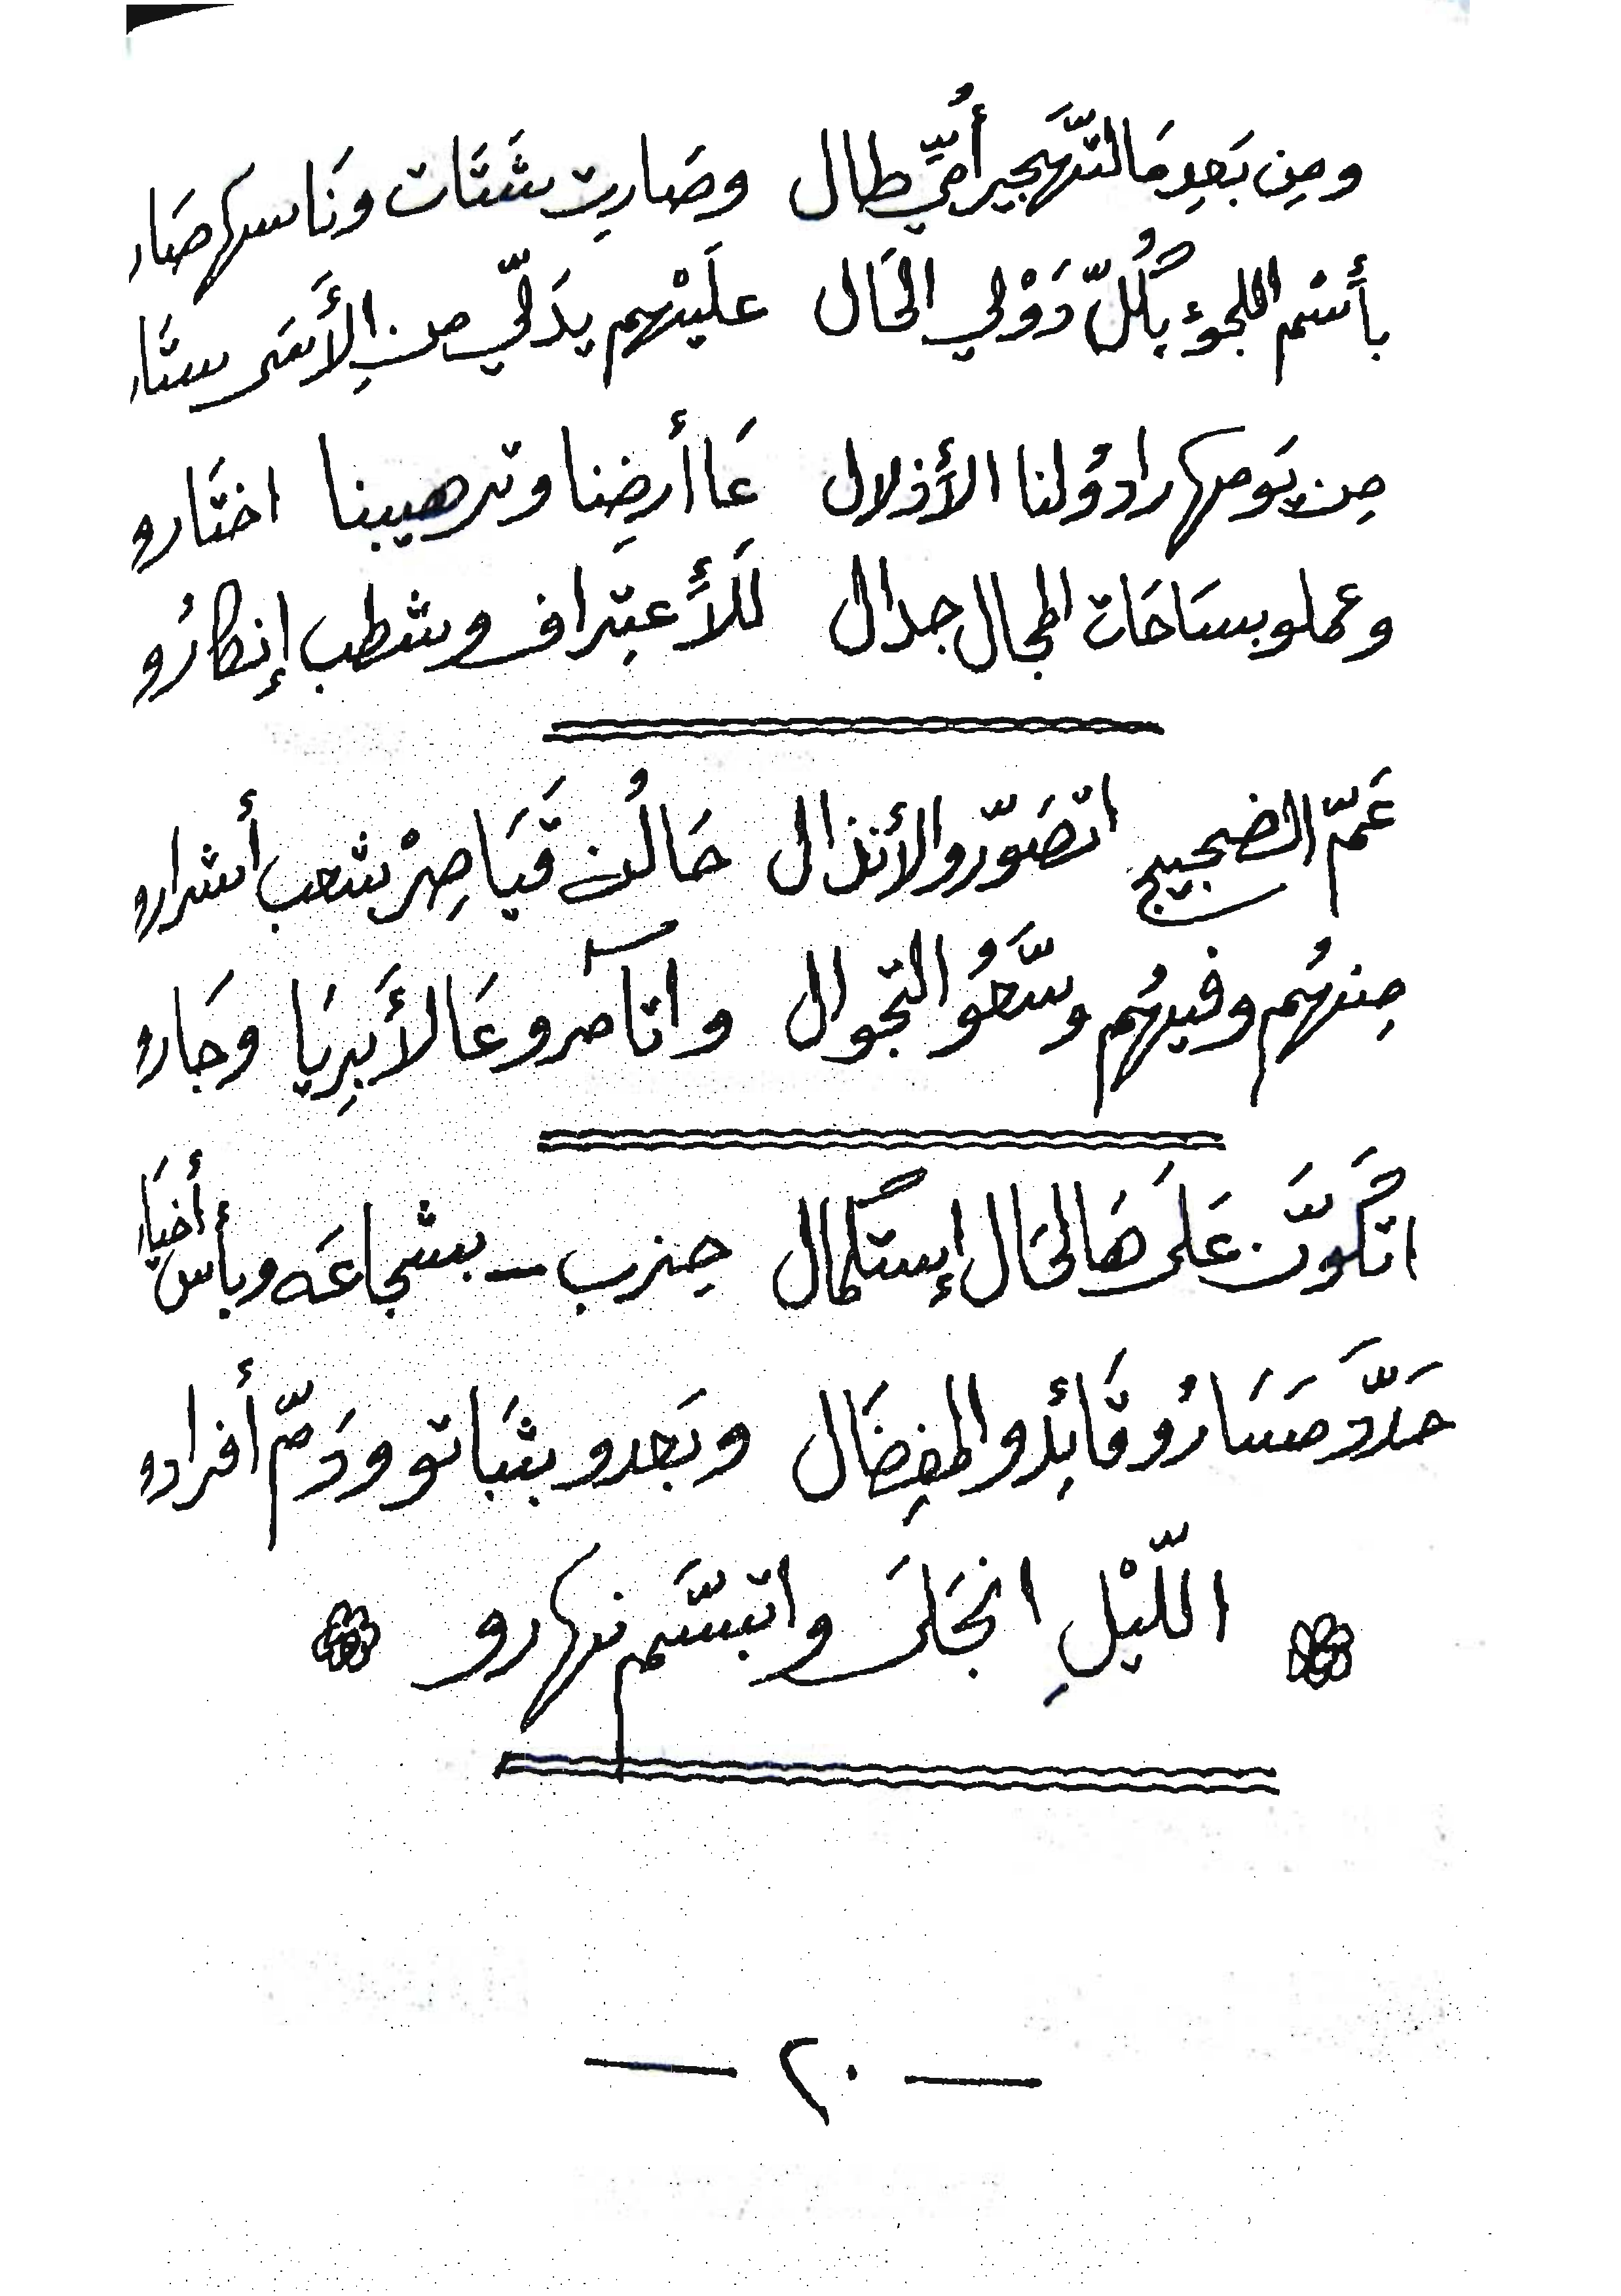 ومِن بَعدِ مَا التّهَجير أُمّي طال وصَارتِ شَتَات ونَاسها صَار
بأسْم اللجوء بكُلّ دَوْلي الحَال علَيْهم يدَلّي من الأَسَى ستَار
مِن يَومها رادوُلنا الأذلال عَا أرضِنا وترهيبنا اختَارو
وعملو بسَاحَات المجال جدال للأَعتِراف وشطب إنكارُو
عَمّ الضجيج اتصَوّرو الأنذال حَالُن قَيَاصِرْ بشعب أشرارو
مِنهُم وفيهُم وسَّعُو التجوال واتآمرو عَالأَبرِيَا وجَارو
اتكَوَّن عَلَى هَالحَال إستكمال حِزب – بشجاعَه وبأس أخيَار
حَدَّد مَسَارُو قَائِدو المِفضَال وبَعدو بثبَاتو ودَمّ أفرادو
الليْلِ انجَلَى واتبسَّم نهارو
— ٢٠ —